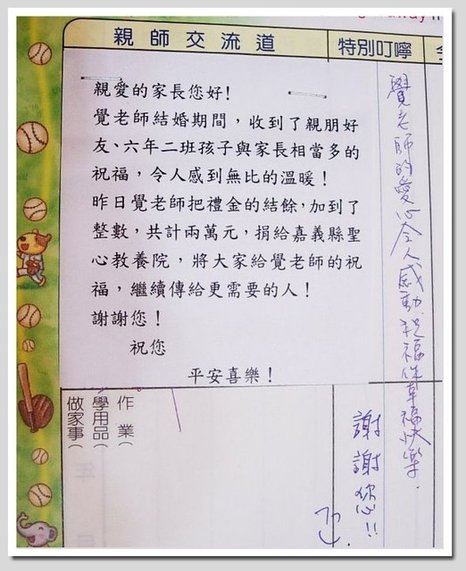 親師交流道
特別叮嚀
親愛的家長您好!
覺老師結婚期間，收到了親朋好
友、六年二班孩子與家長相當多的
祝福，令人感到無比的溫暖!
昨日覺老師把禮金的結餘，加到了
整數，共計兩萬元，捐給嘉義縣聖
心教養院，將大家給覺老師的祝
福，繼續傳給更需要的人!
謝謝您!
祝您
平安喜樂!
覺老師的愛心令人感動.祝福您幸福快樂.
謝謝您!!
作業
學用品(
做家事(